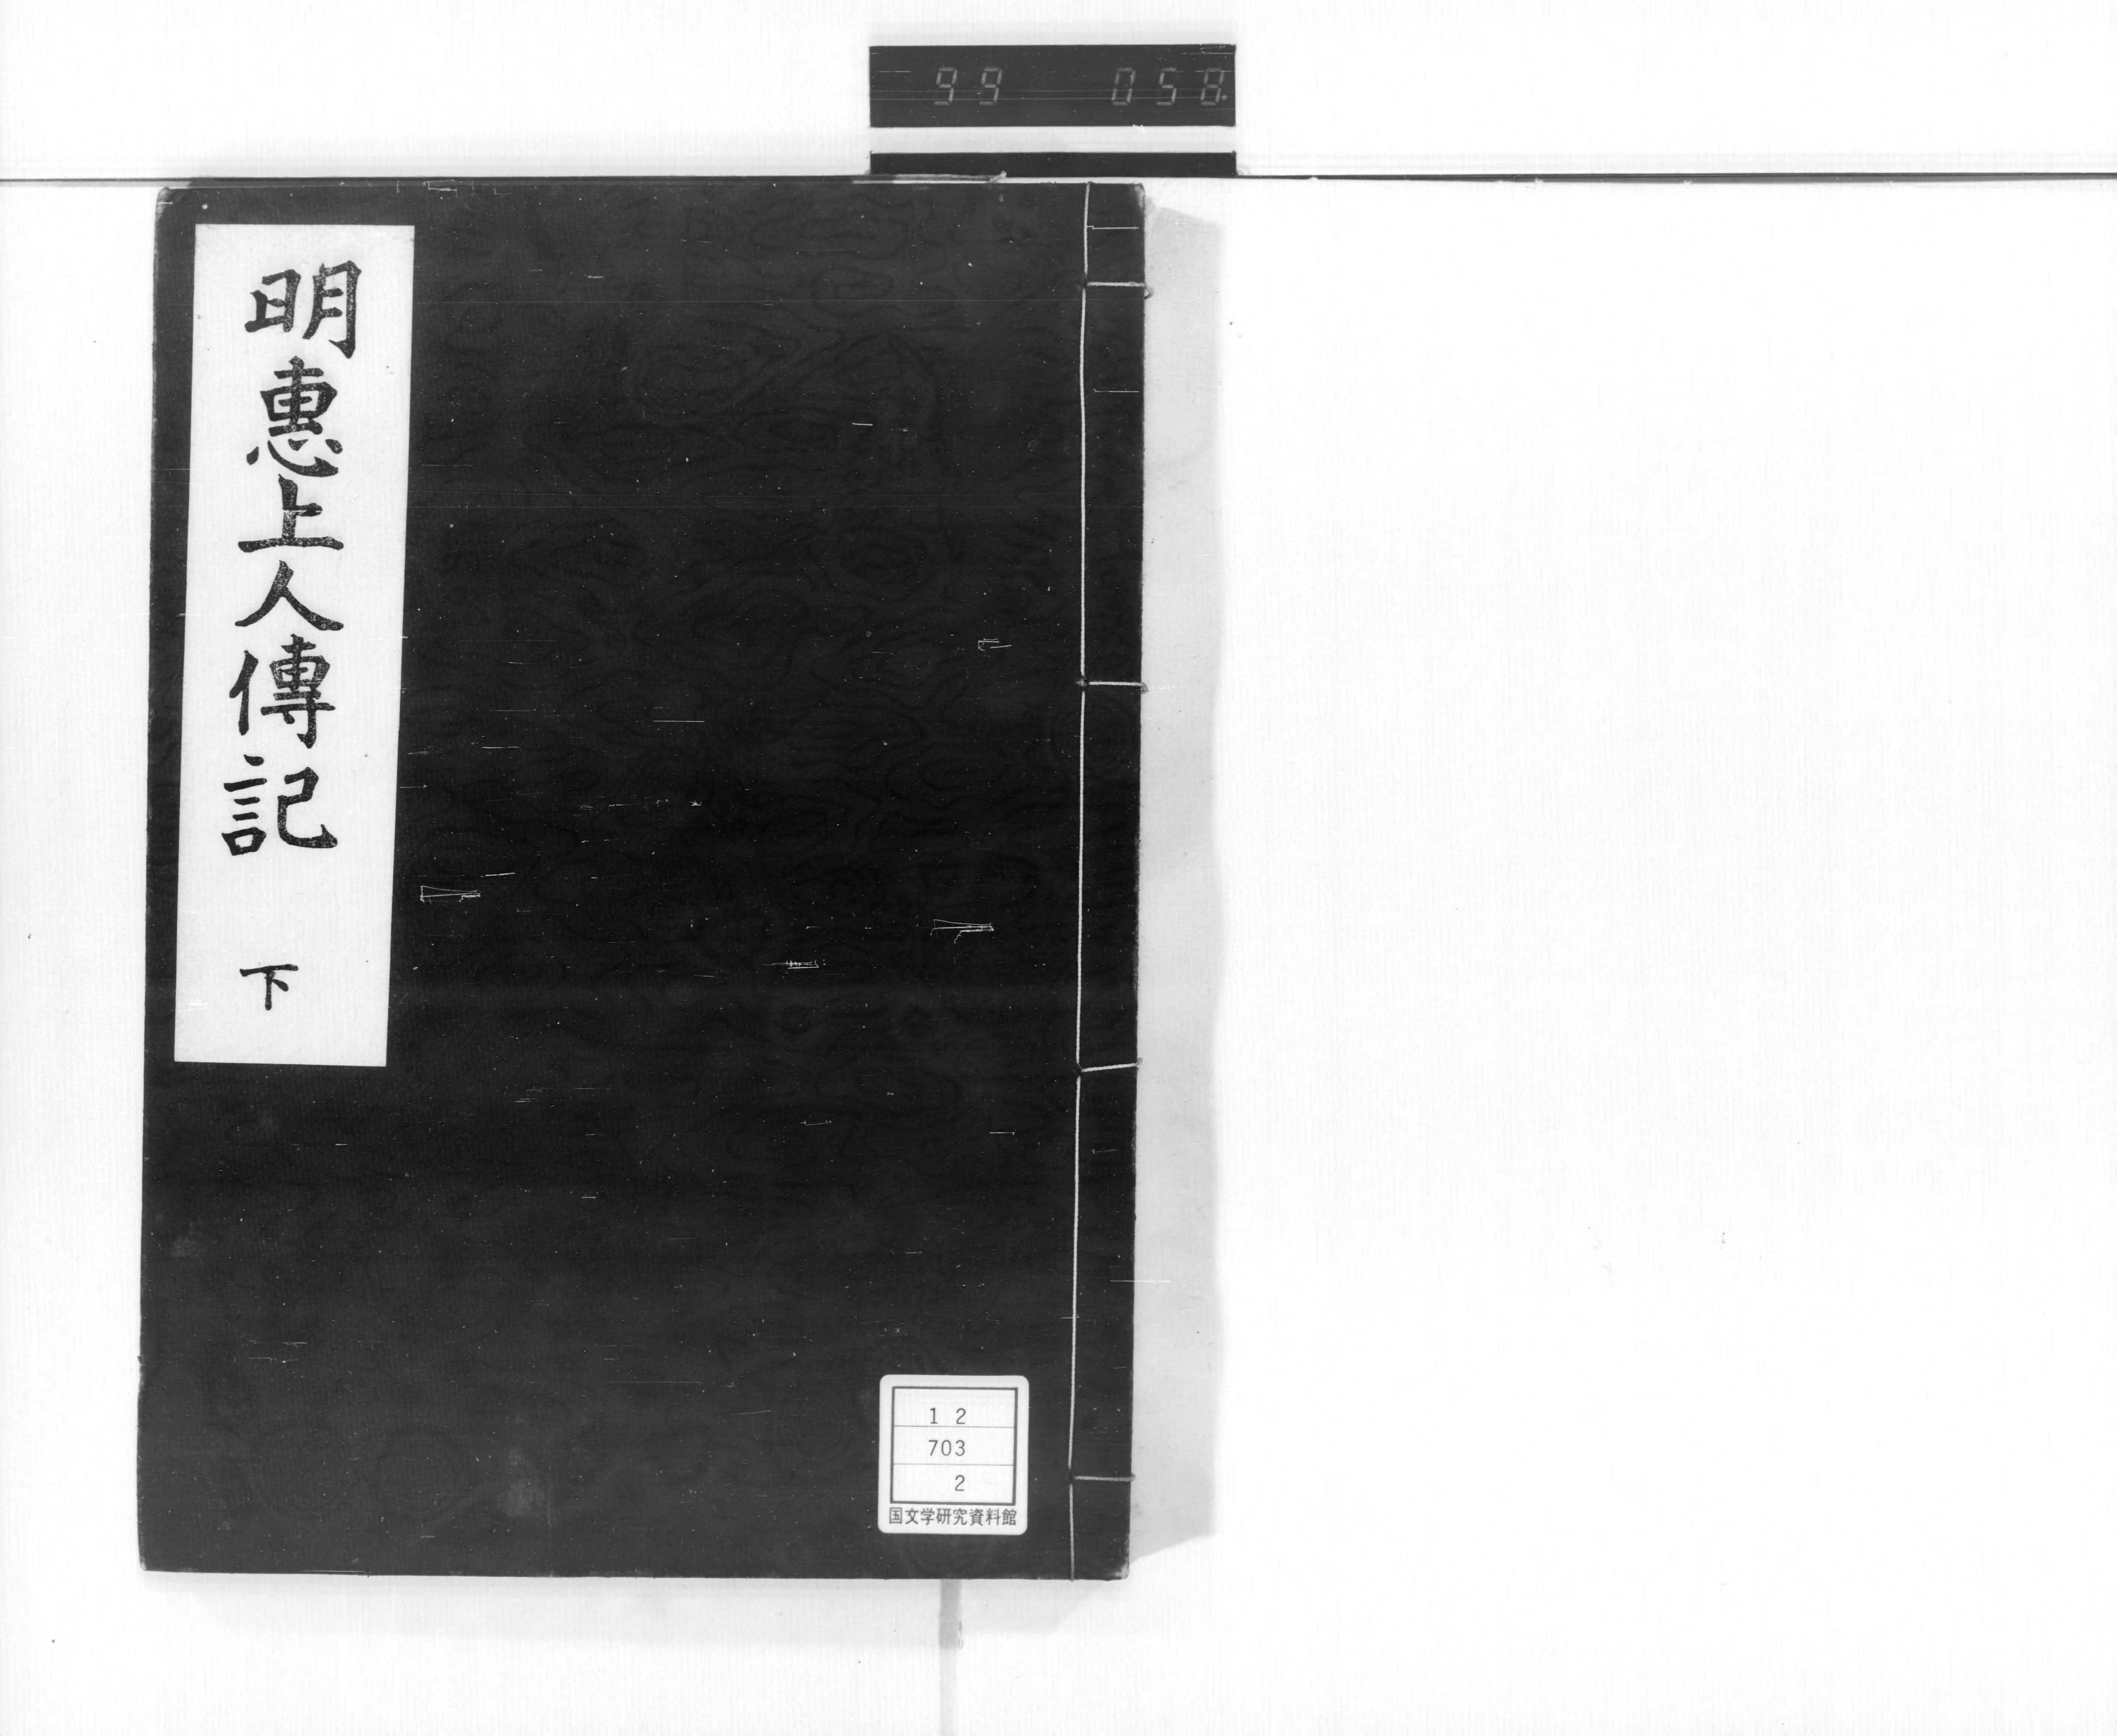 99 058
明惠上人傳記 下
12
703
2
国文学研究資料館